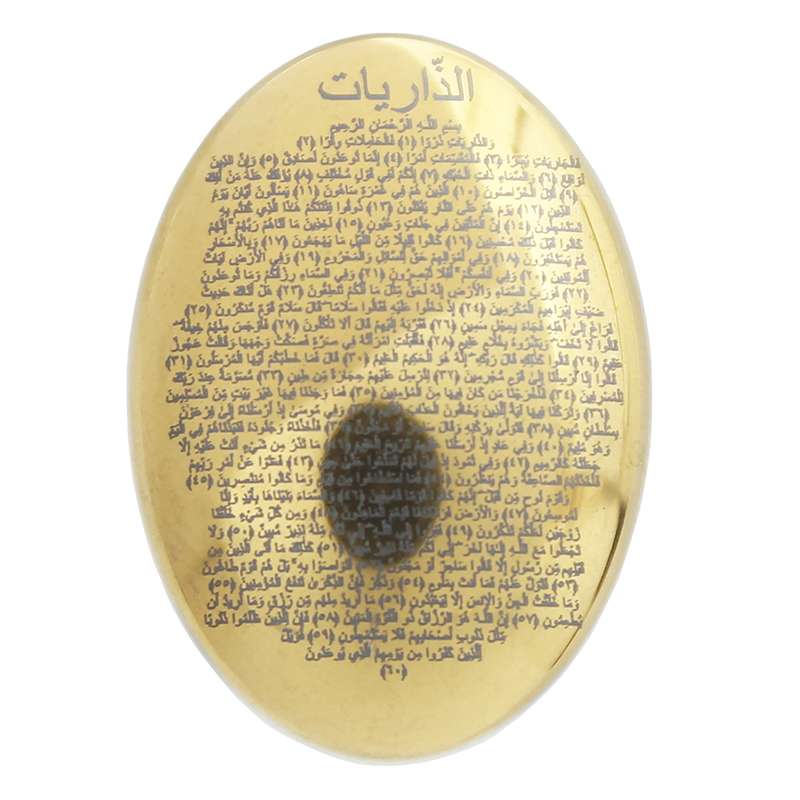 الذّاريات
بِسْمِ اللَّـهِ الرَّحْمَـٰنِ الرَّحِيمِ
وَالذَّارِيَاتِ ذَرْوًا ﴿١﴾ فَالْحَامِلَاتِ وِقْرًا ﴿٢﴾
فَالْجَارِيَاتِ يُسْرًا ﴿٣﴾ فَالْمُقَسِّمَاتِ أَمْرًا ﴿٤﴾ إِنَّمَا تُوعَدُونَ لَصَادِقٌ ﴿٥﴾ وَإِنَّ الدِّينَ
لَوَاقِعٌ ﴿٦﴾ وَالسَّمَاءِ ذَاتِ الْحُبُكِ ﴿٧﴾ إِنَّكُمْ لَفِي قَوْلٍ مُّخْتَلِفٍ ﴿٨﴾ يُؤْفَكُ عَنْهُ مَنْ أُفِكَ
﴿٩﴾ قُتِلَ الْخَرَّاصُونَ ﴿١٠﴾ الَّذِينَ هُمْ فِي غَمْرَةٍ سَاهُونَ ﴿١١﴾ يَسْأَلُونَ أَيَّانَ يَوْمُ
الدِّينِ ﴿١٢﴾ يَوْمَ هُمْ عَلَى النَّارِ يُفْتَنُونَ ﴿١٣﴾ ذُوقُوا فِتْنَتَكُمْ هَـٰذَا الَّذِي كُنتُم بِهِ
تَسْتَعْجِلُونَ ﴿١٤﴾ إِنَّ الْمُتَّقِينَ فِي جَنَّاتٍ وَعُيُونٍ ﴿١٥﴾ آخِذِينَ مَا آتَاهُمْ رَبُّهُمْ ۚ إِنَّهُمْ
كَانُوا قَبْلَ ذَٰلِكَ مُحْسِنِينَ ﴿١٦﴾ كَانُوا قَلِيلًا مِّنَ اللَّيْلِ مَا يَهْجَعُونَ ﴿١٧﴾ وَبِالْأَسْحَارِ
هُمْ يَسْتَغْفِرُونَ ﴿١٨﴾ وَفِي أَمْوَالِهِمْ حَقٌّ لِّلسَّائِلِ وَالْمَحْرُومِ ﴿١٩﴾ وَفِي الْأَرْضِ آيَاتٌ
لِّلْمُوقِنِينَ ﴿٢٠﴾ وَفِي أَنفُسِكُمْ ۚ أَفَلَا تُبْصِرُونَ ﴿٢١﴾ وَفِي السَّمَاءِ رِزْقُكُمْ وَمَا تُوعَدُونَ
﴿٢٢﴾ فَوَرَبِّ السَّمَاءِ وَالْأَرْضِ إِنَّهُ لَحَقٌّ مِّثْلَ مَا أَنَّكُمْ تَنطِقُونَ ﴿٢٣﴾ هَلْ أَتَاكَ حَدِيثُ
ضَيْفِ إِبْرَاهِيمَ الْمُكْرَمِينَ ﴿٢٤﴾ إِذْ دَخَلُوا عَلَيْهِ فَقَالُوا سَلَامًا ۖ قَالَ سَلَامٌ قَوْمٌ مُّنكَرُونَ ﴿٢٥﴾
فَرَاغَ إِلَىٰ أَهْلِهِ فَجَاءَ بِعِجْلٍ سَمِينٍ ﴿٢٦﴾ فَقَرَّبَهُ إِلَيْهِمْ قَالَ أَلَا تَأْكُلُونَ ﴿٢٧﴾ فَأَوْجَسَ مِنْهُمْ خِيفَةً ۖ
قَالُوا لَا تَخَفْ ۖ وَبَشَّرُوهُ بِغُلَامٍ عَلِيمٍ ﴿٢٨﴾ فَأَقْبَلَتِ امْرَأَتُهُ فِي صَرَّةٍ فَصَكَّتْ وَجْهَهَا وَقَالَتْ عَجُوزٌ
عَقِيمٌ ﴿٢٩﴾ قَالُوا كَذَٰلِكِ قَالَ رَبُّكِ ۖ إِنَّهُ هُوَ الْحَكِيمُ الْعَلِيمُ ﴿٣٠﴾ قَالَ فَمَا خَطْبُكُمْ أَيُّهَا الْمُرْسَلُونَ ﴿٣١﴾
قَالُوا إِنَّا أُرْسِلْنَا إِلَىٰ قَوْمٍ مُّجْرِمِينَ ﴿٣٢﴾ لِنُرْسِلَ عَلَيْهِمْ حِجَارَةً مِّن طِينٍ ﴿٣٣﴾ مُّسَوَّمَةً عِندَ رَبِّكَ
لِلْمُسْرِفِينَ ﴿٣٤﴾ فَأَخْرَجْنَا مَن كَانَ فِيهَا مِنَ الْمُؤْمِنِينَ ﴿٣٥﴾ فَمَا وَجَدْنَا فِيهَا غَيْرَ بَيْتٍ مِّنَ الْمُسْلِمِينَ
﴿٣٦﴾ وَتَرَكْنَا فِيهَا آيَةً لِّلَّذِينَ يَخَافُونَ الْعَذَابَ وَفِي مُوسَىٰ إِذْ أَرْسَلْنَاهُ إِلَىٰ فِرْعَوْنَ
بِسُلْطَانٍ مُّبِينٍ ﴿٣٨﴾ فَتَوَلَّىٰ بِرُكْنِهِ وَقَالَ أَوْ مَجْنُونٌ فَأَخَذْنَاهُ وَجُنُودَهُ فَنَبَذْنَاهُمْ فِي الْيَمِّ
وَهُوَ مُلِيمٌ ﴿٤٠﴾ وَفِي عَادٍ إِذْ أَرْسَلْنَا مَا تَذَرُ مِن شَيْءٍ أَتَتْ عَلَيْهِ إِلَّا
جَعَلَتْهُ كَالرَّمِيمِ ﴿٤٢﴾ وَفِي ثَمُودَ إِذْ قِيلَ لَهُمْ تَمَتَّعُوا حَتَّىٰ حِينٍ ﴿٤٣﴾ فَعَتَوْا عَنْ أَمْرِ رَبِّهِمْ
فَأَخَذَتْهُمُ الصَّاعِقَةُ وَهُمْ يَنظُرُونَ ﴿٤٤﴾ فَمَا اسْتَطَاعُوا وَمَا كَانُوا مُنتَصِرِينَ ﴿٤٥﴾
وَقَوْمَ نُوحٍ مِّن قَبْلُ ۖ إِنَّهُمْ كَانُوا قَوْمًا فَاسِقِينَ ﴿٤٦﴾ وَالسَّمَاءَ بَنَيْنَاهَا بِأَيْدٍ وَإِنَّا
لَمُوسِعُونَ ﴿٤٧﴾ وَالْأَرْضَ ﴿٤٨﴾ وَمِن كُلِّ شَيْءٍ خَلَقْنَا
زَوْجَيْنِ لَعَلَّكُمْ تَذَكَّرُونَ ﴿٤٩﴾ إِلَى اللَّـهِ ۖ إِنِّي مِّنْهُ نَذِيرٌ مُّبِينٌ ﴿٥٠﴾ وَلَا
تَجْعَلُوا مَعَ اللَّـهِ إِلَـٰهًا آخَرَ ۖ إِنِّي لَكُم نَذِيرٌ مُّبِينٌ ﴿٥١﴾ كَذَٰلِكَ مَا أَتَى الَّذِينَ مِن
قَبْلِهِم مِّن رَّسُولٍ إِلَّا قَالُوا سَاحِرٌ أَوْ مَجْنُونٌ أَتَوَاصَوْا بِهِ ۚ بَلْ هُمْ قَوْمٌ طَاغُونَ
﴿٥٣﴾ فَتَوَلَّ عَنْهُمْ فَمَا أَنتَ بِمَلُومٍ ﴿٥٤﴾ وَذَكِّرْ فَإِنَّ الذِّكْرَىٰ تَنفَعُ الْمُؤْمِنِينَ ﴿٥٥﴾
وَمَا خَلَقْتُ الْجِنَّ وَالْإِنسَ إِلَّا لِيَعْبُدُونِ ﴿٥٦﴾ مَا أُرِيدُ مِنْهُم مِّن رِّزْقٍ وَمَا أُرِيدُ أَن
يُطْعِمُونِ ﴿٥٧﴾ إِنَّ اللَّـهَ هُوَ الرَّزَّاقُ ذُو الْقُوَّةِ الْمَتِينُ ﴿٥٨﴾ فَإِنَّ لِلَّذِينَ ظَلَمُوا ذَنُوبًا
مِّثْلَ ذَنُوبِ أَصْحَابِهِمْ فَلَا يَسْتَعْجِلُونِ ﴿٥٩﴾ فَوَيْلٌ
لِّلَّذِينَ كَفَرُوا مِن يَوْمِهِمُ الَّذِي يُوعَدُونَ
﴿٦٠﴾